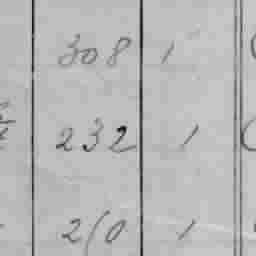 308 1
232 1
210 1